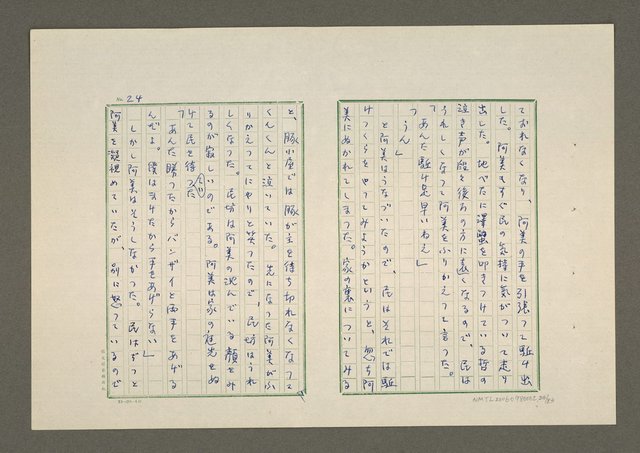 ておれなくなり、阿美の手を引張って駈け出
した。阿美もすぐ民の気持に気がついて走り
出した。地べたに澤庵を叩きつけている哲の
泣き声が段々後ろの方に遠くなるので、民は
うれしくなって阿美をふりかえって言った。
「あんた駈け足早いねえ」
「うん」
と阿美はうなづいたので、民はそれでは駈
けっくらをやってみようかというと、忽ち阿
美にぬかれてしまった。家の裏についてみる
No. 24
と、豚小屋では豚が主を待ち切れなくなって
くんくんと泣いていた。先になった阿美がふ
りかえってにやりと笑ったので、民坊はうれ
しくなった。民坊は阿美の沈んでいる顔をみ
るのが寂しいのである。阿美は家の
けて民を待っていた
「あんた勝ったからバンザイと両手をあげる
んだよ。僕はまけたから手をあげらない」
しかし阿美はそうしなかった。民はずっと
阿美を凝視めていたが、別に怒っているので
NMTL20060980002